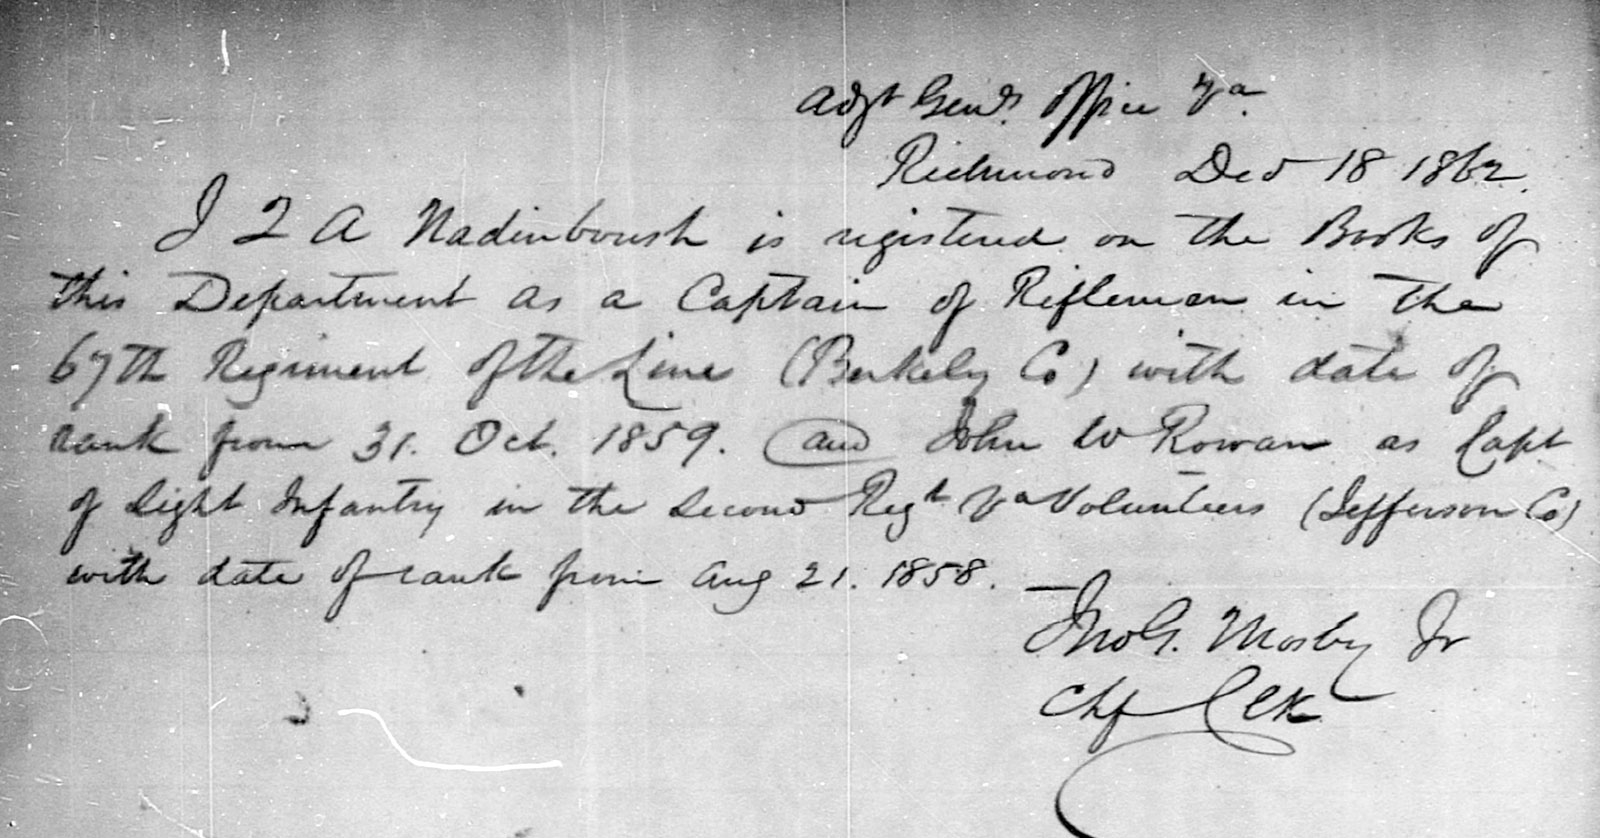 Adjt Genls Office Va
Richmond Dec 18 1862.
J Q A Nadenboush is registered on the Books of
this Department as a Captain of Riflemen in the
67th Regiment of the Line (Berkely Co) with date of
rank from 31. Oct. 1859. and John W Rowan as Capt
of Light Infantry in the Second Regt Va Volunteers (Jefferson Co)
with date of rank from Aug 21. 1858. —
Jno G. Mosby Jr
Chf Clk